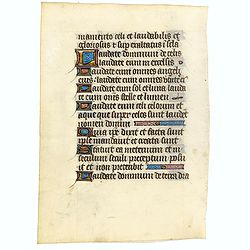 mamento celi et laudabilis et
gloriosus et sup exaltatus i secla
Laudate dominum de celis
laudate eum in excelsis
Laudate eum omnes angeli
eius laudate eum omnes virtutes
Laudate eum sol et luna lauda
te eum omnes stelle et lumen
Laudate eum celi celorum et
aque que super celos sunt laudet
nomen domini
Quia ipe dixit et facta sunt
ipse mandavit et creata sunt
Statuit ea in eternum et in
seculum seculi preceptum posu
it et non preteribit
Laudate dominum de terra dra